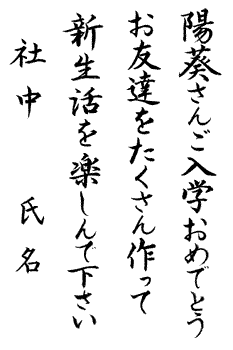 陽葵さんご入学おめでとう
お友達をたくさん作って
新生活を楽しんで下さい
社中　氏名